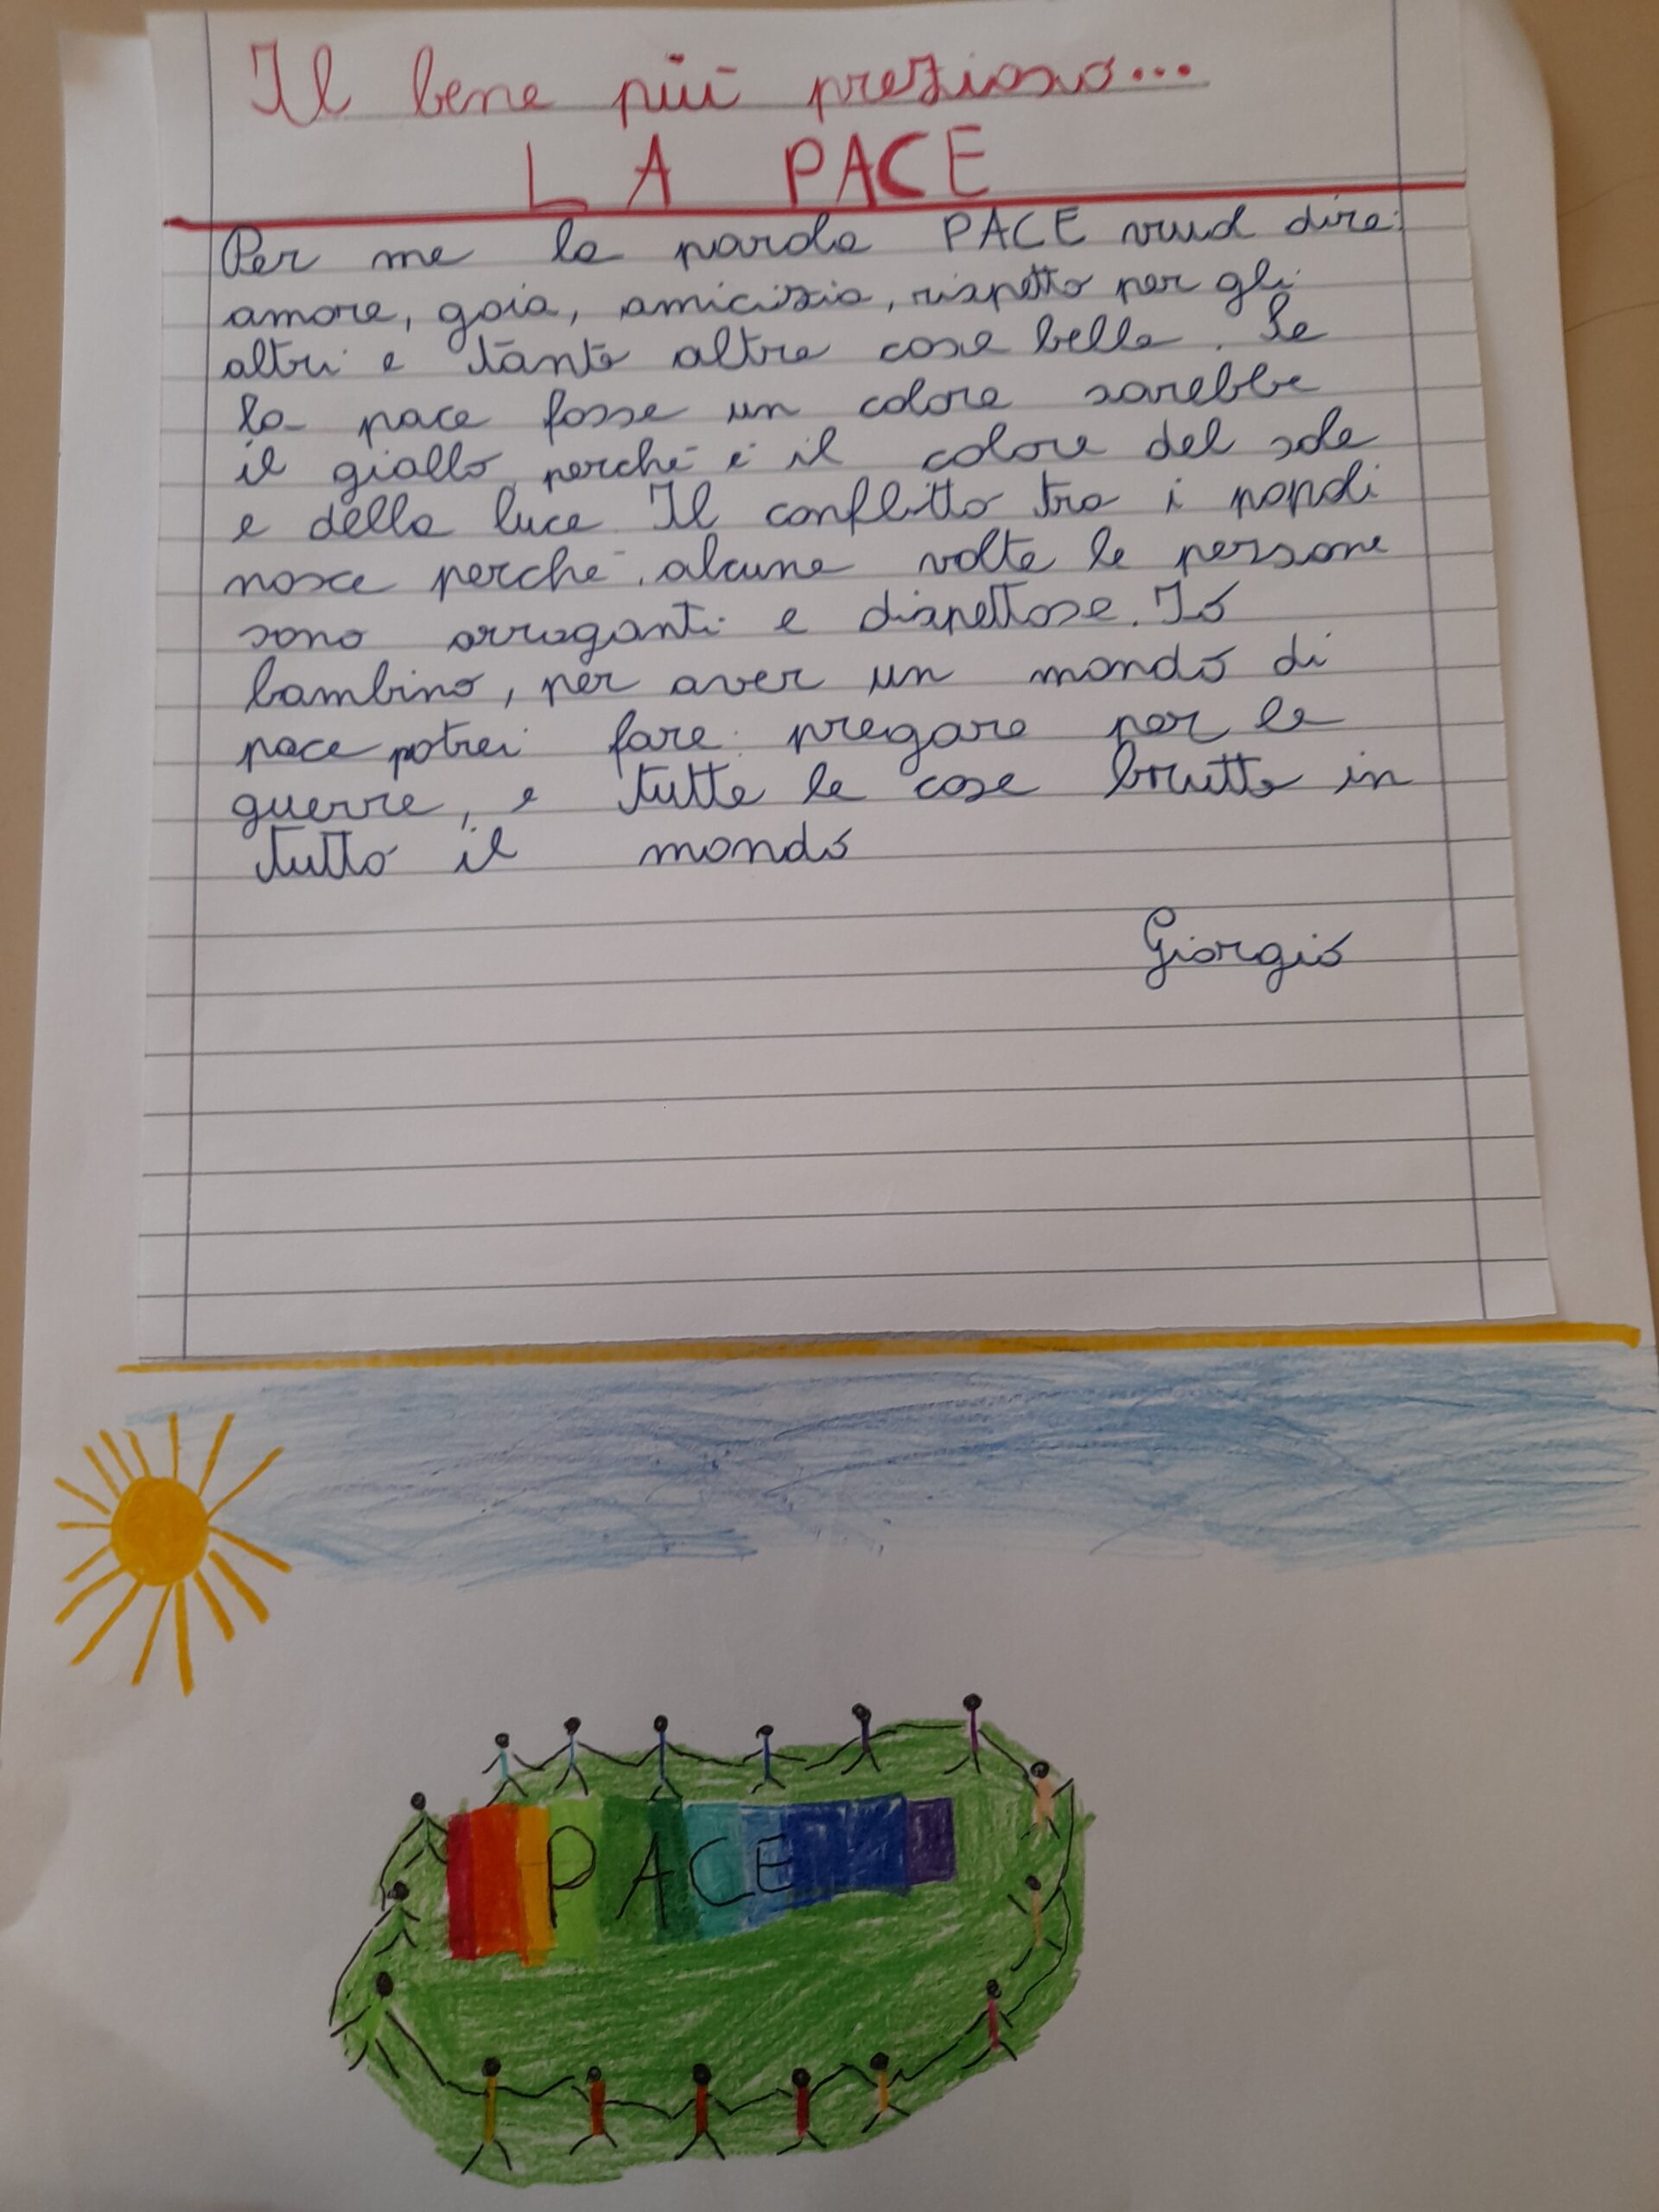 Il bene più prezioso...
LA PACE
Per me la parola PACE vuol dire:
amore, goia, amicizia, rispetto per gli
altri e tante altre cose belle. Se
la pace fosse un colore sarebbe
il giallo perché è il colore del sole
e della luce. Il conflitto tra i popoli
nasce perché alcune volte le persone
sono arroganti e dispettose. Io
bambino, per aver un mondo di
pace potrei fare: pregare per le
guerre, e tutte le cose brutte in
tutto il mondo
Giorgio
PACE